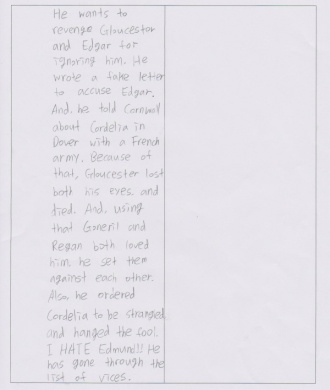 He wants to
revenge Gloucester
and Edgar for
ignoring him. He
wrote a fake letter
to accuse Edgar.
And, he told Cornwall
about Cordelia in
Dover with a French
army. Because of
that, Gloucester lost
both his eyes and
died. And, using
that Goneril and
Regan both loved
him, he set them
against each other.
Also he ordered
Cordelia to be strangled
and hanged the fool.
I HATE Edmund!! He
has gone through the
list of vices.